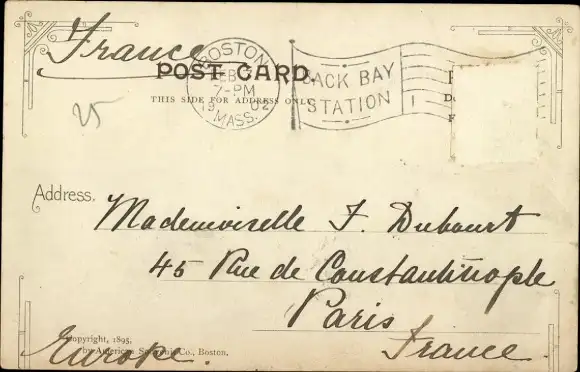 France
BOSTON
FEB
7-PM
1902
MASS.
BACK BAY
STATION
1
POST CARD.
THIS SIDE FOR ADDRESS ONLY
25
Address.
Mademoiselle F. Dubourt
45 Rue de Constantinople
Paris
France
Europe.
Copyright, 1895,
by American Souvenir Co., Boston.